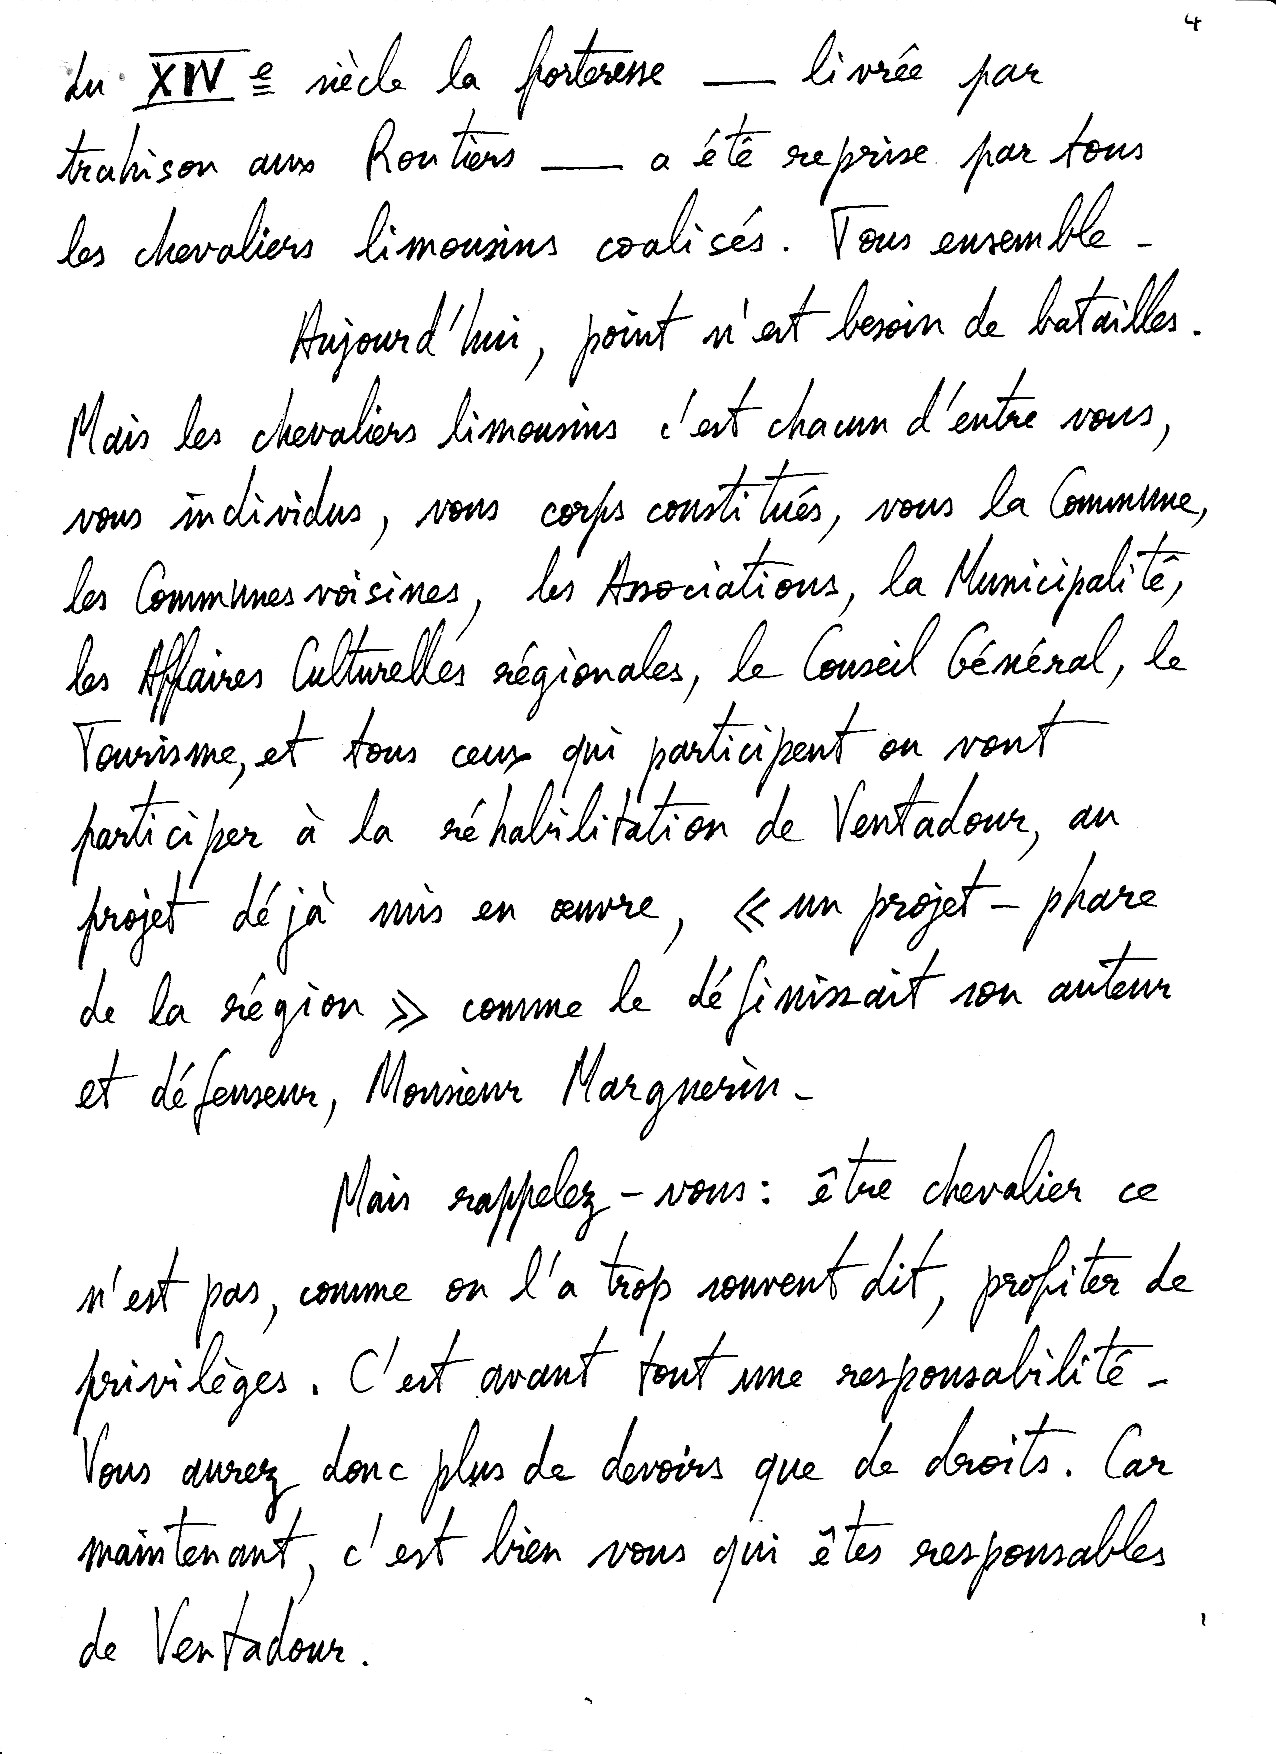 4
du XIVe siècle la forteresse — livrée par
trahison aux Routiers — a été reprise par tous
les chevaliers limousins coalisés. Tous ensemble -
Aujourd'hui, point n'est besoin de batailles.
Mais les chevaliers limousins c'est chacun d'entre vous,
vous individus, vous corps constitués, vous la Commune,
les Communes voisines, les Associations, la Municipalité,
les Affaires Culturelles régionales, le Conseil Général, le
Tourisme, et tous ceux qui participent ou vont
participer à la réhabilitation de Ventadour, au
projet déjà mis en œuvre, « un projet - phare
de la région » comme le définissait son auteur
et défenseur, Monsieur Marguerin -
Mais rappelez - vous : être chevalier ce
n'est pas, comme on l'a trop souvent dit, profiter de
privilèges. C'est avant tout une responsabilité -
Vous aurez donc plus de devoirs que de droits. Car
maintenant, c'est bien vous qui êtes responsables
de Ventadour.